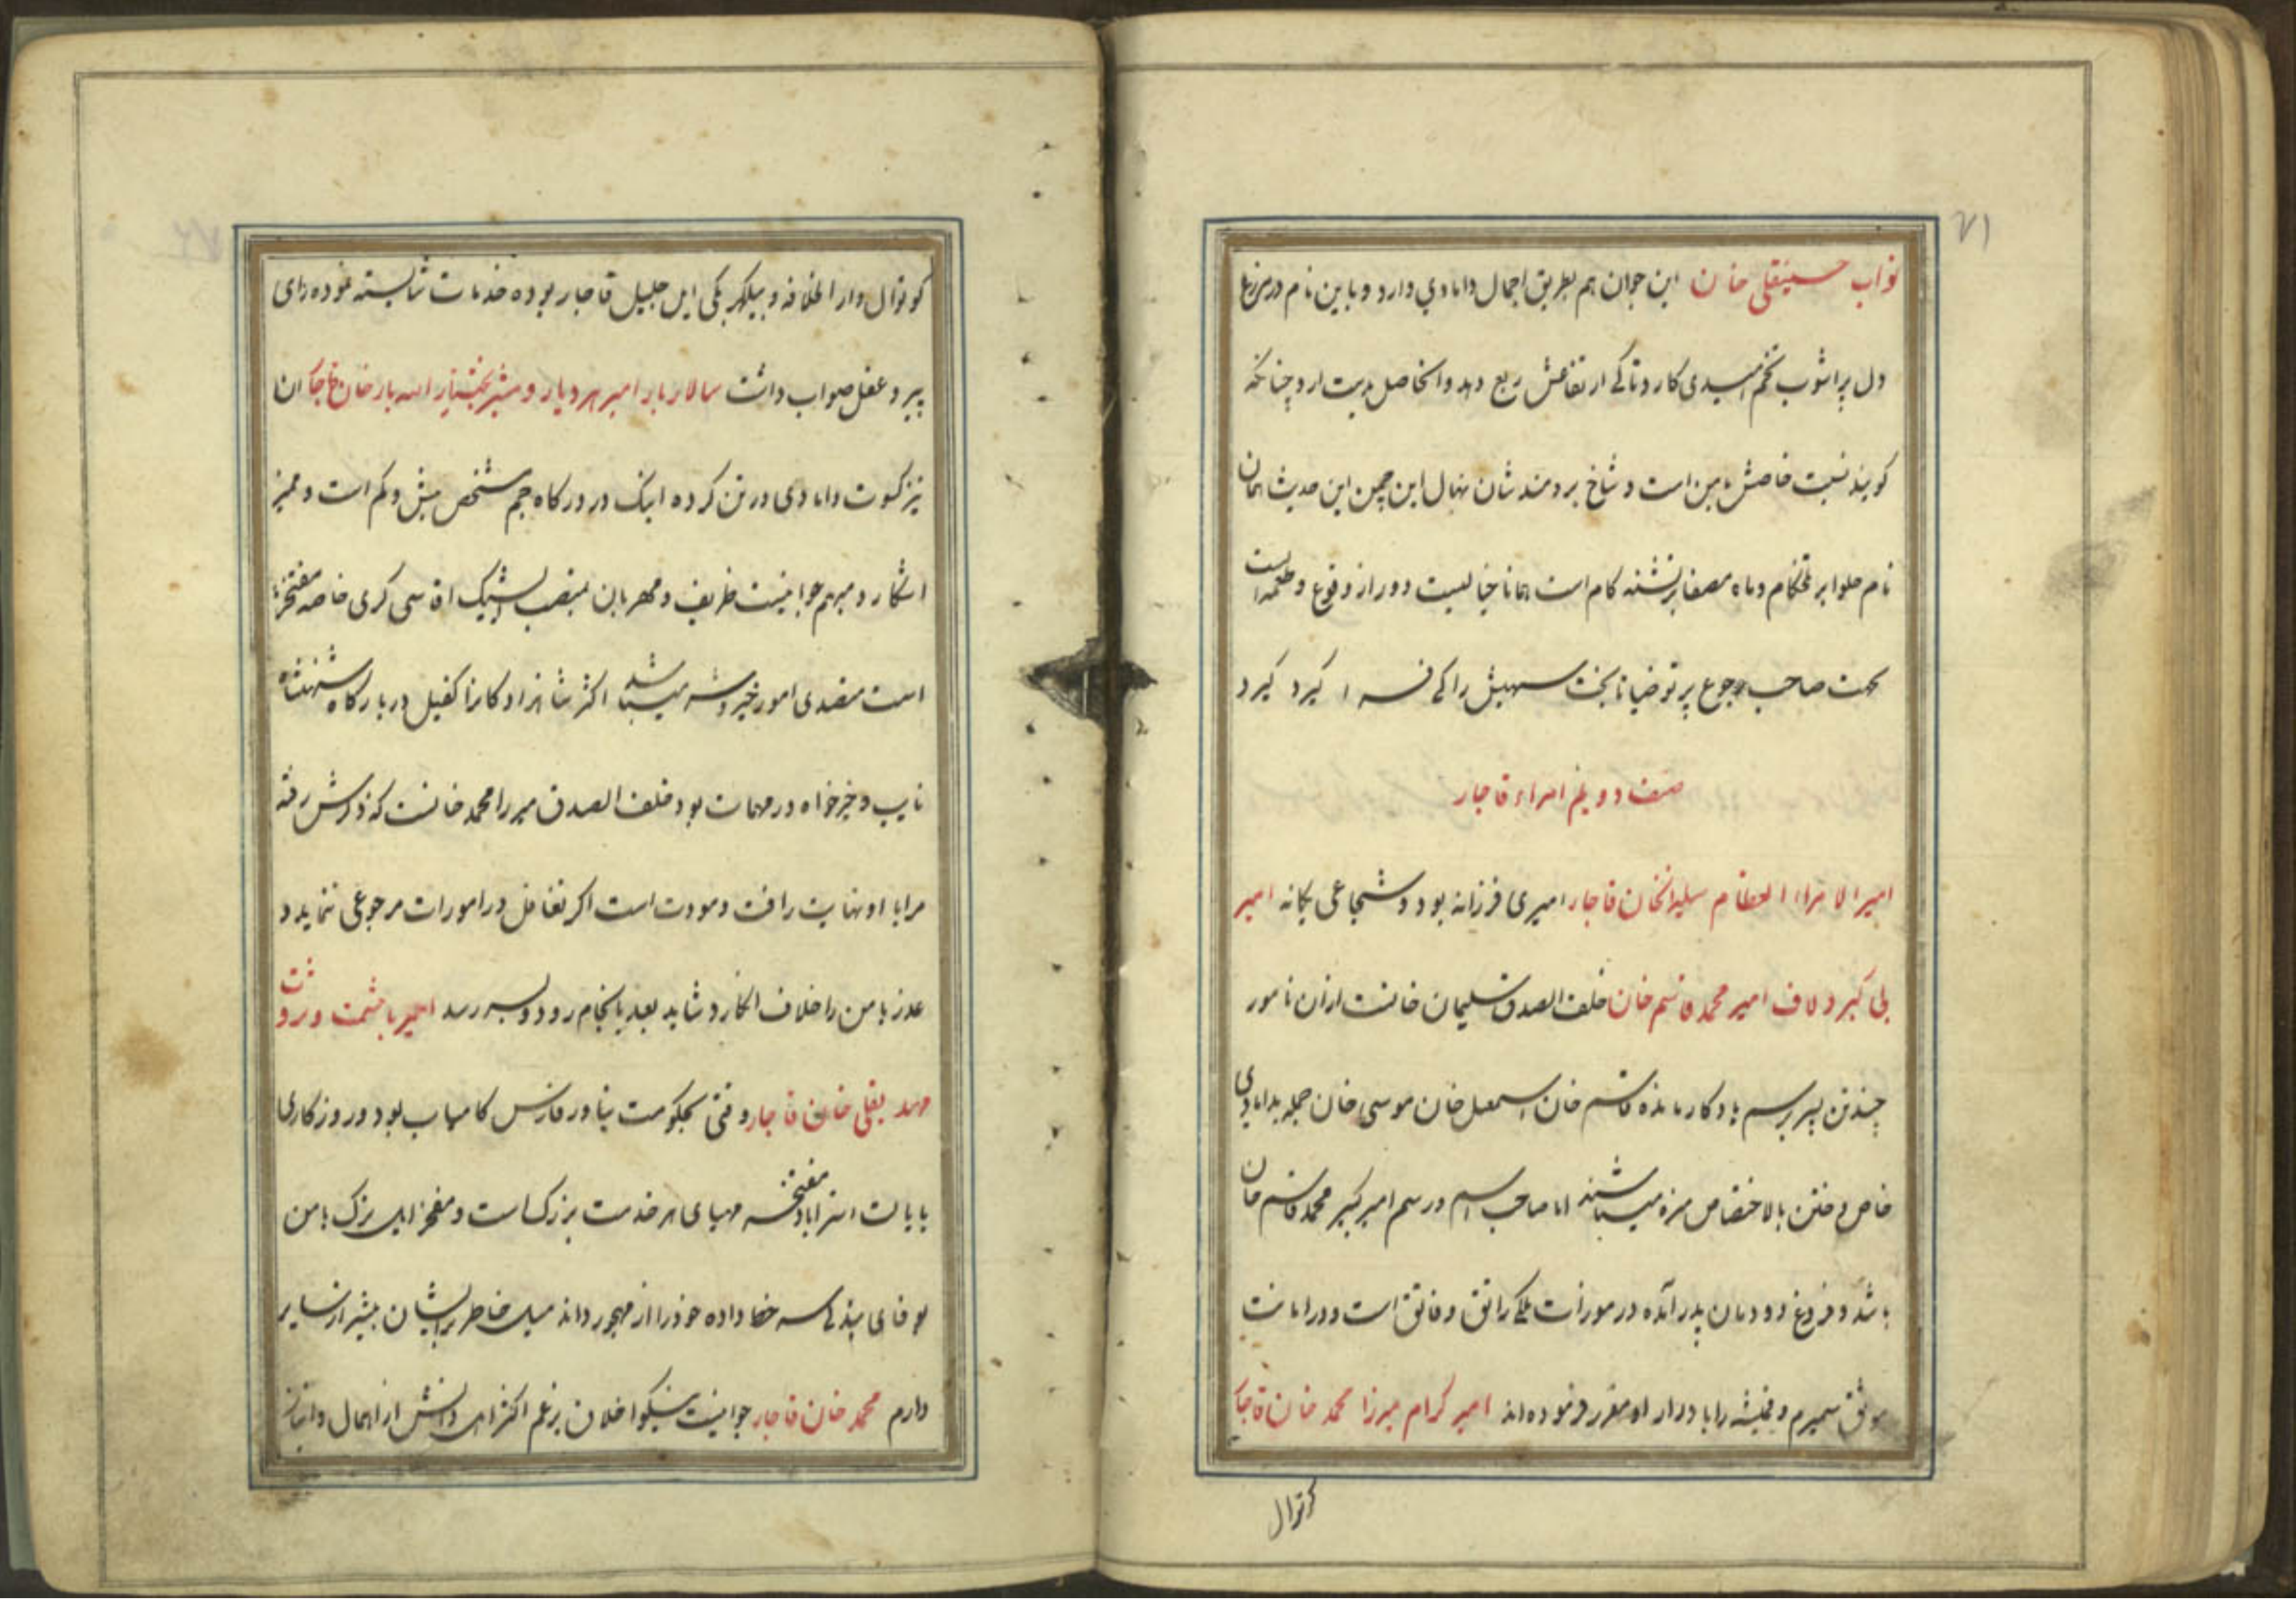 ۷۱
نواب حسینقلی خان این جوان هم بطریق اجمال دامادي دارد و باین نام در مزرع
دل پراشوب تخم امیدی کارد تا کی ارتفاعش ریع دهد و انحاصل بدست ارد چنانکه
کویند نسبت خاصش بامن است و شاخ برومند شان نهال این چمن این حدیث همان
نام حلوا بر تلخکام و ماه مصفا بر تشنه کام است همانا خیالیست دور از وقوع و طمعه است
صاحب رجوع پرتو ضیا تا بخت سهیلش را کی فرا کیرد کیرد
صنف دویم امراء قاجار
امیر الامراء العظام سلیمانخان قاجار امیری فرزانه بود و شجاعی یکانه امیر
بی کبر و لاف امیر محمد قاسم خان خلف الصدق سلیمان خانست ازان نامور
چند تن پسر برسم یادکار مانده قاسم خان اسمعیل خان موسی خان جمله بدامادی
خاص و ختن بالاختصاص مزه میباشند اما صاحب اسم و رسم امیر کبیر محمد قاسم خان
باشد و فروغ دودمان پدر آمده در مورات ملکی راتق و فاتق است و در امانت
موثق سمیرم و قمیشه را با دردار او مقرر فرموده اند امیر کرام میرزا محمد خان قاجار
کوتوال
کوتوال دار الخلافه و بیکلربکی ایل جلیل قاجار بوده خدمات شایسته نموده رای
پیر و عقل صواب داشت سالار بار امیر هر دیار و مشیر بختیار الله یار خان قاجار ان
نیز کسوت دامادی در تن کرده اینک در درکاه جم مشخص بیش و کم است و ممیز
اشکار و مبهم جوانیست ظریف و مهربان بمنصب ایشیک اقاسی کری خاصه مفتخر
است متصدی امور خیر و شر میباشد اکثر شاهزادکانرا کفیل در بارکاه شهنشاه
نایب و خیرخواه در مهمات بود خلف الصدق میرزا محمد خانست که ذکرش رفته
مرابا او نهایت رافت و مودت است اکر تغافل در امورات مرجوعی ننماید و
عذر بامن را خلاف انکارد شاید بعد بانجام رود و بسر رسد امیر باحشمت و ثروت
مهد یقلی خان قاجار وقتی بحکومت بنادر فارس کامیاب بود و روزکاری
بایالت استراباد مفتخر مهیای هر خدمت بزرک است و مفخر ایل بزرک بامن
بوفای بند کی سر خط داده خود را از مهجور داند میل خاطر بر ایشان بیشتر از سایر
دارم محمد خان قاجار جوانیست نیکو اخلاق برغم اکثر اهل دانش از اهمال و